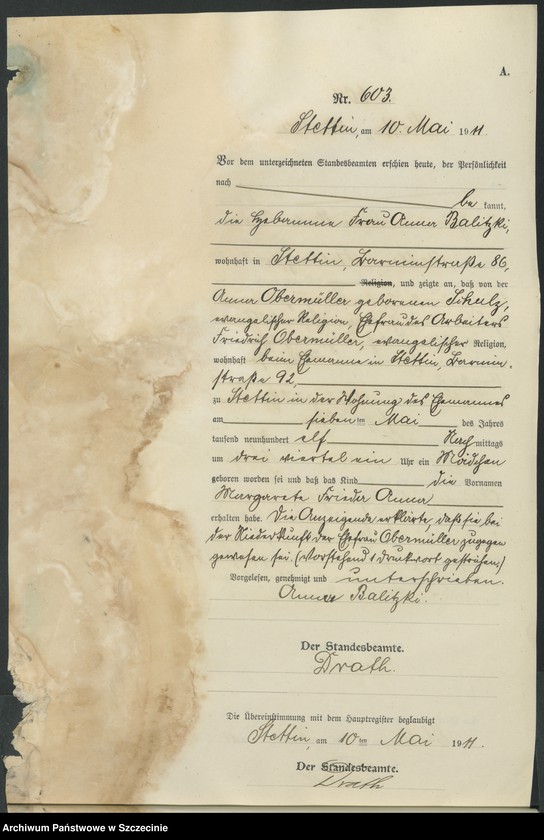 A.
Nr. 603.
Stettin, am 10. Mai 1911.
Vor dem unterzeichneten Standesbeamten erschien heute, der Persönlichkeit
nach
be kannt,
die Hebamme Frau Anna Balitzki,
wohnhaft in Stettin, Barnimstraße 86,
Religion, und zeigte an, daß von der
Anna Obermüller geborenen Schulz,
evangelischer Religion, Ehefrau des Arbeiters
Friedrich Obermüller, evangelischer Religion,
wohnhaft beim Ehemanne in Stettin, Barnim-
straße 92,
zu Stettin in der Wohnung des Ehemannes
am sieben ten Mai des Jahres
tausend neunhundert elf Nach mittags
um drei viertel ein Uhr ein Mädchen
geboren worden sei und daß das Kind die Vornamen
Margarete Frieda Anna
erhalten habe. Die Anzeigende erklärte, daß sie bei
der Niederkunft der Ehefrau Obermüller zugegen
gewesen sei. (Vorstehend 1 Druckwort gestrichen.)
Vorgelesen, genehmigt und unterschrieben.
Anna Balitzki.
Der Standesbeamte.
Drath.
Die Übereinstimmung mit dem Hauptregister beglaubigt
Stettin, am 10 ten Mai 1911.
Der Standesbeamte.
Drath
Archiwum Państwowe w Szczecinie